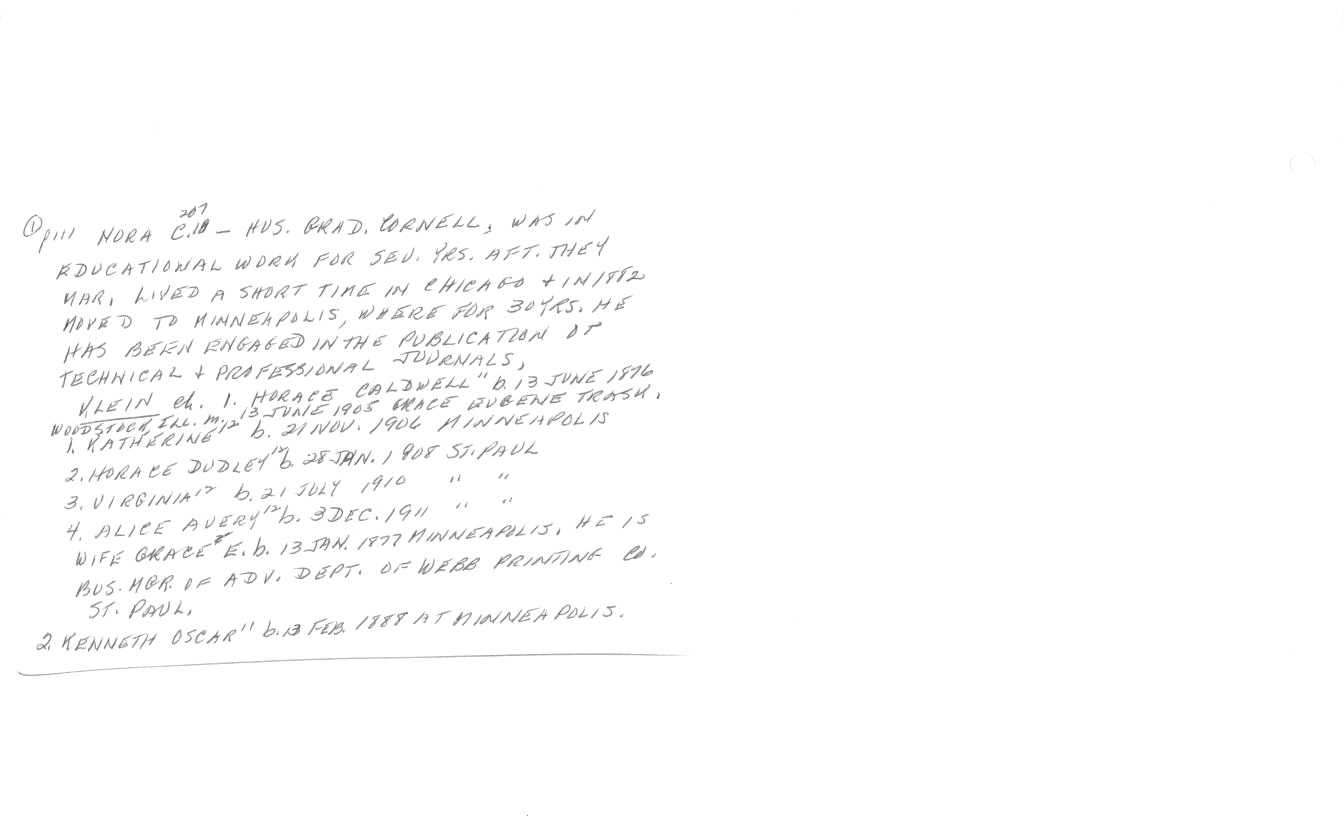 207
① p111 NORA C.10 — HUS. GRAD. CORNELL, WAS IN
EDUCATIONAL WORK FOR SEV. YRS. AFT. THEY
MAR, LIVED A SHORT TIME IN CHICAGO + IN 1882
MOVED TO MINNEAPOLIS, WHERE FOR 30 YRS. HE
HAS BEEN ENGAGED IN THE PUBLICATION OF
TECHNICAL + PROFESSIONAL JOURNALS,
KLEIN ch. 1. HORACE CALDWELL" b. 13 JUNE 1876
WOODSTOCK, ILL. m. 13 JUNE 1905 GRACE EUGENE TRASK.
1. KATHERINE12 b. 21 NOV. 1906 MINNEAPOLIS
2. HORACE DUDLEY12 b. 28 JAN. 1908 ST. PAUL
3. VIRGINIA12 b. 21 JULY 1910 " "
4. ALICE AVERY12 b. 3 DEC. 1911 " "
WIFE GRACE E. b. 13 JAN. 1877 MINNEAPOLIS. HE IS
BUS. MGR. OF ADV. DEPT. OF WEBB PRINTING CO.
ST. PAUL.
2. KENNETH OSCAR11 b. 13 FEB. 1888 AT MINNEAPOLIS.